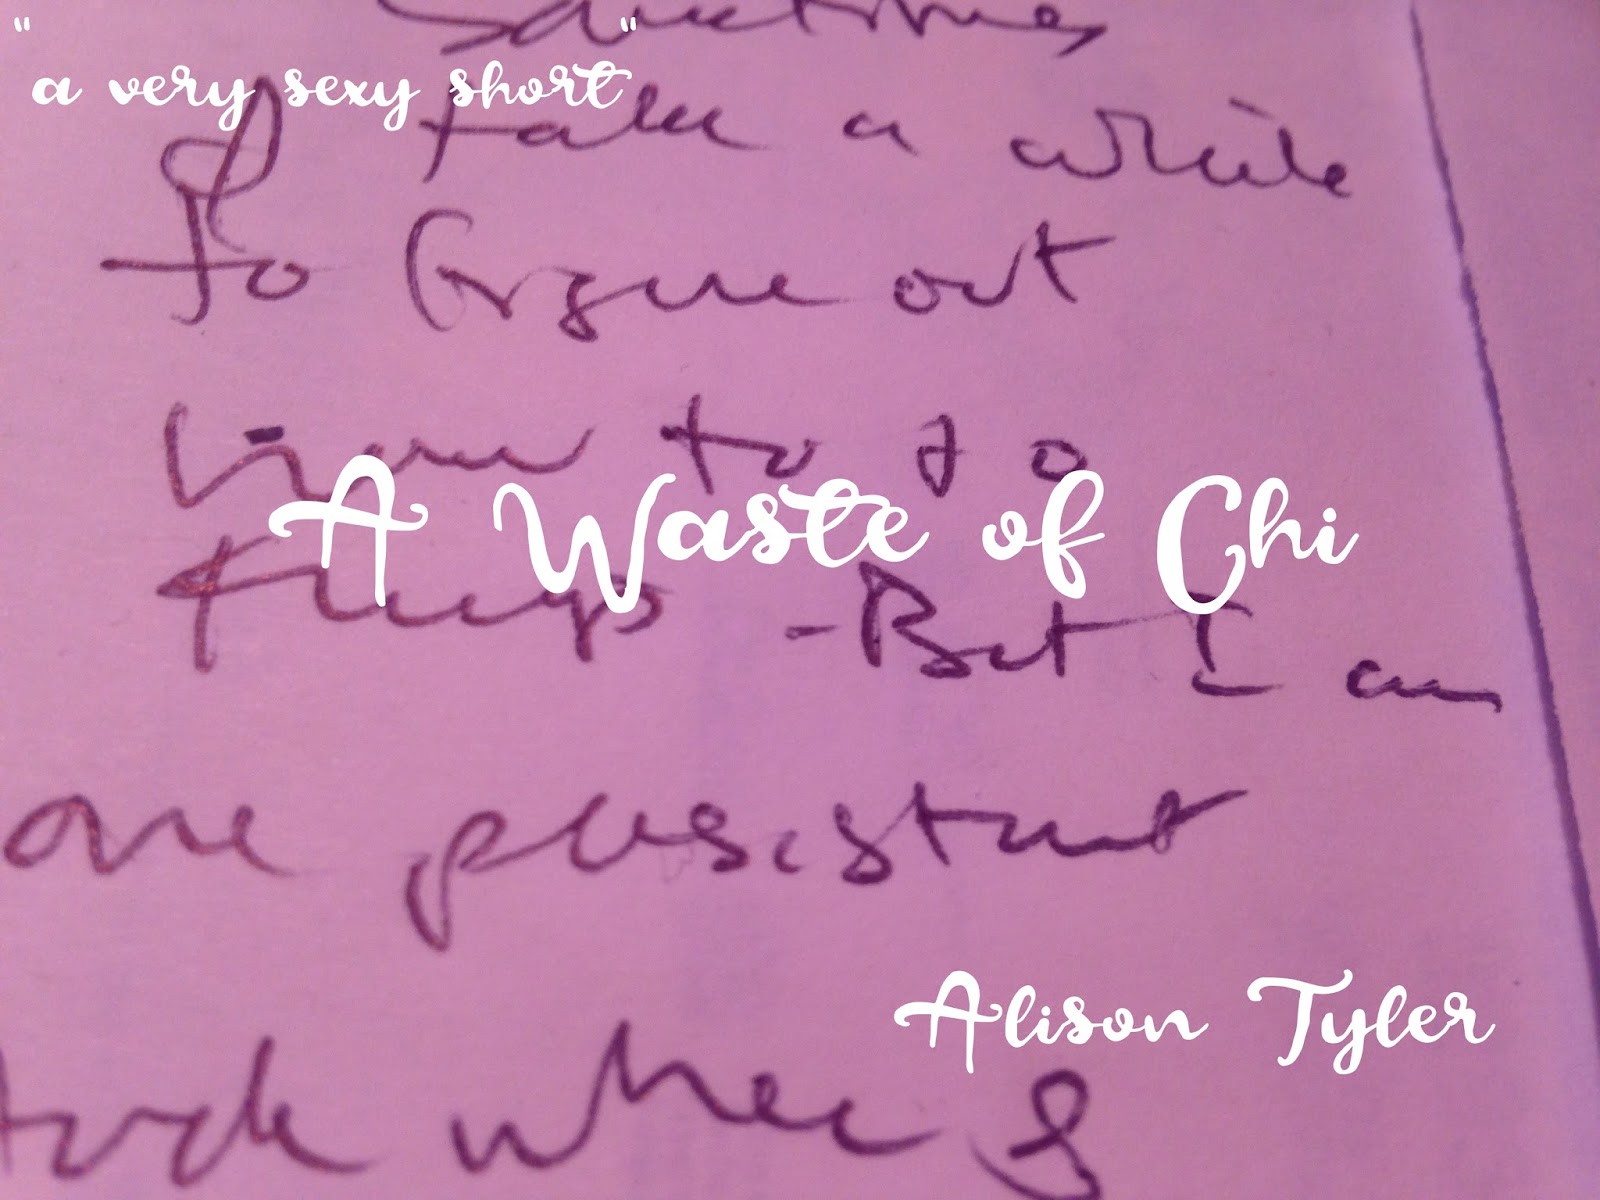 Sometimes
"a very sexy short"
I take a while
to figure out
how to do
A Waste of Chi
things - But I am
one persistent
Alison Tyler
when I